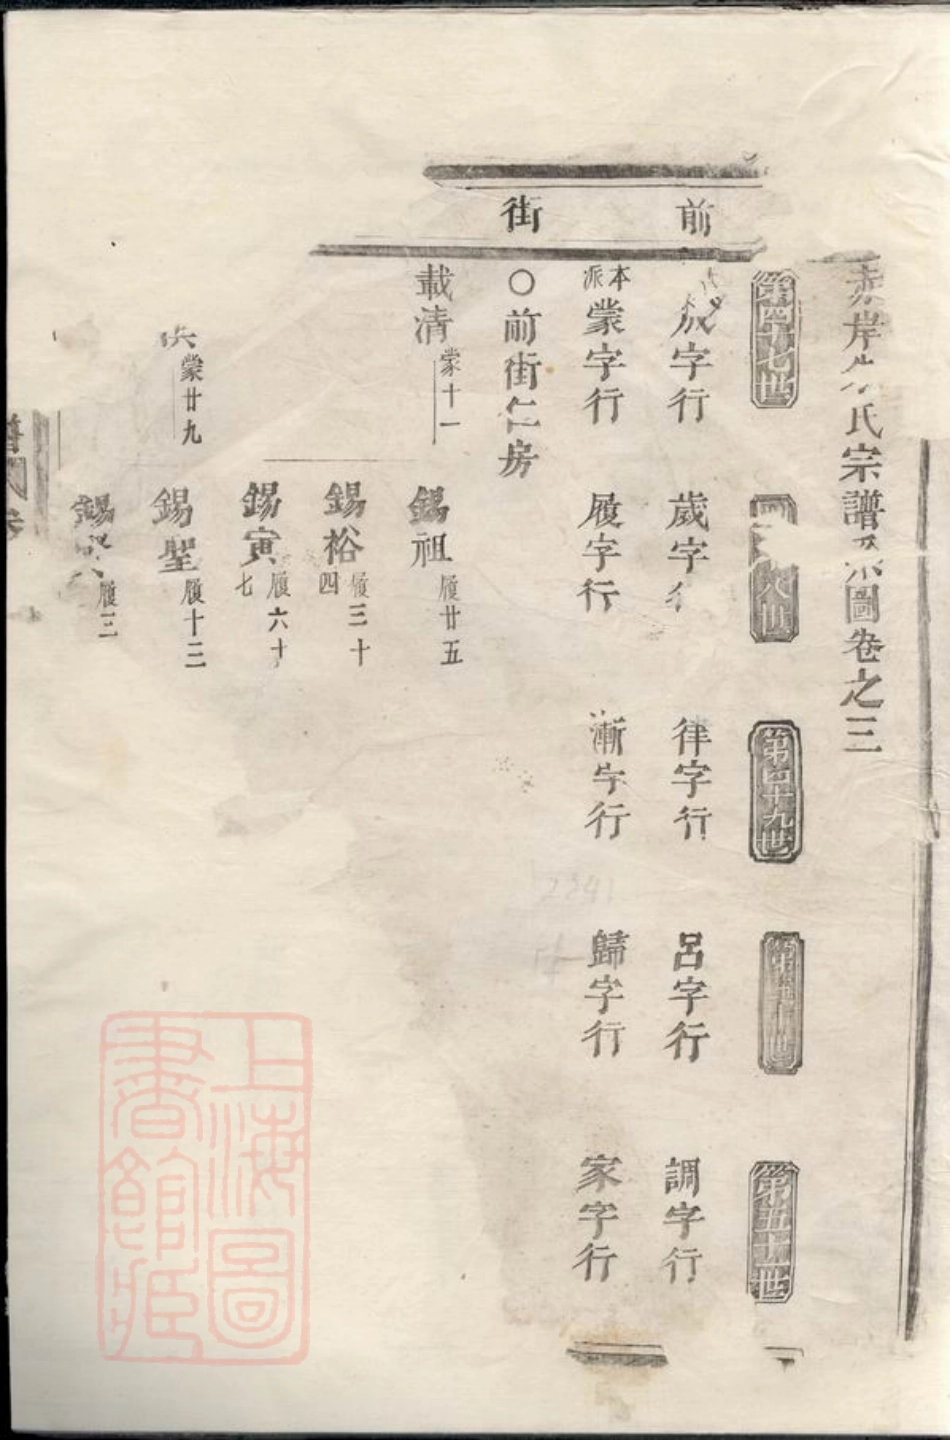 赤岸朱氏宗譜系圖卷之三
前街
第四十七世
第四十八世
第四十九世
第五十世
第五十一世
成字行
歲字行
律字行
呂字行
調字行
本派蒙字行
履字行
漸字行
歸字行
家字行
○前街仁房
載清 蒙十一
錫祖 履廿五
錫裕 履三十四
錫寅 履六十七
蒙廿九
錫聖 履十三
錫 履三
上海圖書館藏